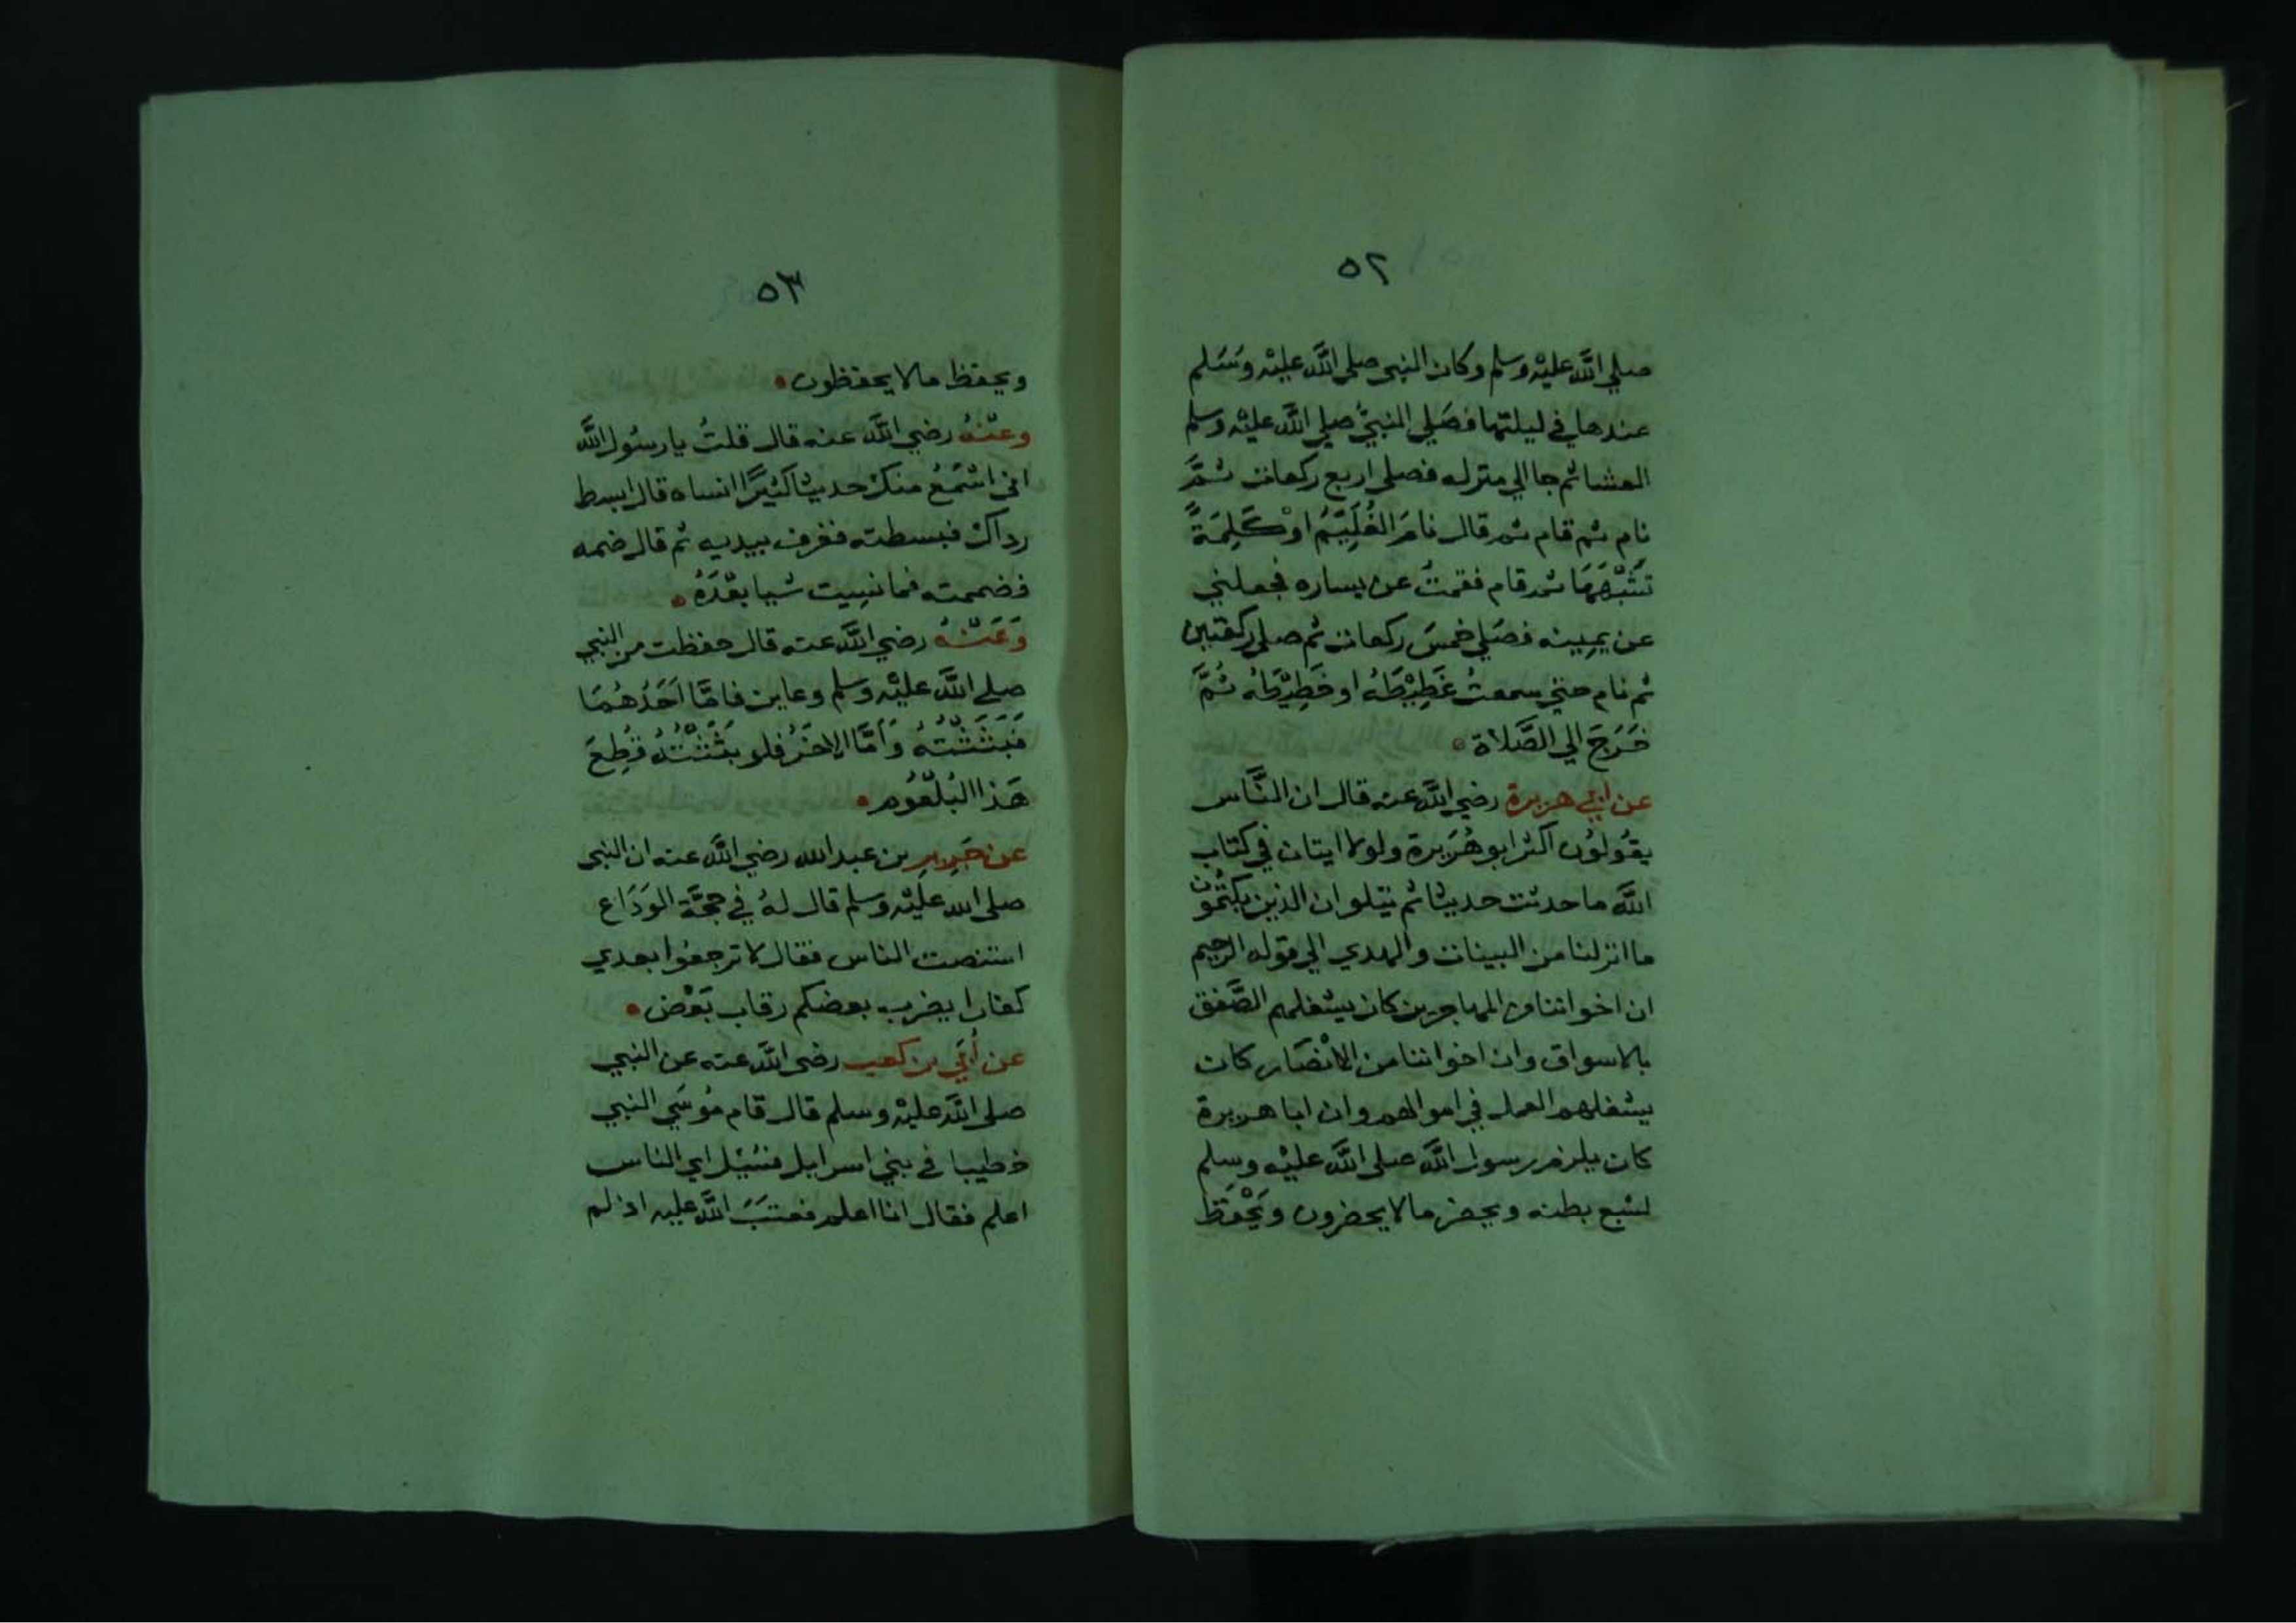 ٥٢
صلي اللَّه عليْه وسلم وكان النبي صلى اللَّه عليْه وسَلم
عندها في ليلتها فصَلي النبيُّ صلي اللَّه عليْه وسلم
العشا ثم جا الي منزله فصلى اربع ركعات ثمَّ
نام ثم قام ثم قال نامَ الغُلَيِّمُ اوْ كَلِمَةً
تشْبِهُهَا ثم قام فقمتُ عن يساره فجعلني
عن يمِينه فصَلي خمسَ ركعات ثم صلى ركعتين
ثم نام حتي سمعتُ غَطِيْطَهُ او خَطِيْطَهُ ثُمَّ
خَرَجَ الي الصَّلاة
عن ابي هريرة رضي اللَّه عنه قال ان النَّاس
يقُولوُن اكثر ابو هُرَيرة ولولا ايتان في كتاب
اللَّه ما حدثت حديثا ثم يتلو ان الذين يكتُمُون
ما انزلنا من البينات والهدي الي قوله الرحيم
ان اخواننا من المهاجرين كان يشغلهم الصَّفق
بالاسواق وان اخواننا من الانْصَار كان
يشغلهم العمل في اموالهم وان ابا هريرة
كان يلزم رسول اللَّه صلى اللَّه عليْه وسلم
لشبع بطنه ويحضر ما لا يحضرون ويَحْفَظ
٥٣
ويحفظ ما لا يحفظون
وعنْهُ رضي اللَّه عنه قال قلتُ يا رسُول اللَّه
اني اسْمَعُ منك حديثا كثيرًا انساه قال ابسط
رداك فبسطته فغرف بيديه ثم قال ضمه
فضممته فما نسِيت شيا بعْدَهُ
وَعَنْهُ رضي اللَّه عنه قال حفظت من النبي
صلي اللَّه عليْه وسلم وعاين فامَّا اَحَدُهُمَا
فَبَثَثْتُهُ وَاَمَّا الاخَرُ فلو بَثَثْتُهُ قُطِعَ
هَذا البُلْعُوم
عن جَرِيرِ بن عبد الله رضي اللَّه عنه ان النبي
صلى الله عليْه وسلم قال لهُ في حجَّة الوَدَاع
استنصت الناس فقال لا ترجعُوا بعدي
كفارا يضرب بعضكم رقاب بَعْض
عن اُبَي بن كعب رضي اللَّه عنه عن النبي
صلى اللَّه عليْه وسلم قال قام مُوسَي النبي
خطيبا في بني اسرايل فسُيْل اي الناس
اعلم فقال انا اعلم فعتَبَ اللَّه عليه اذ لم